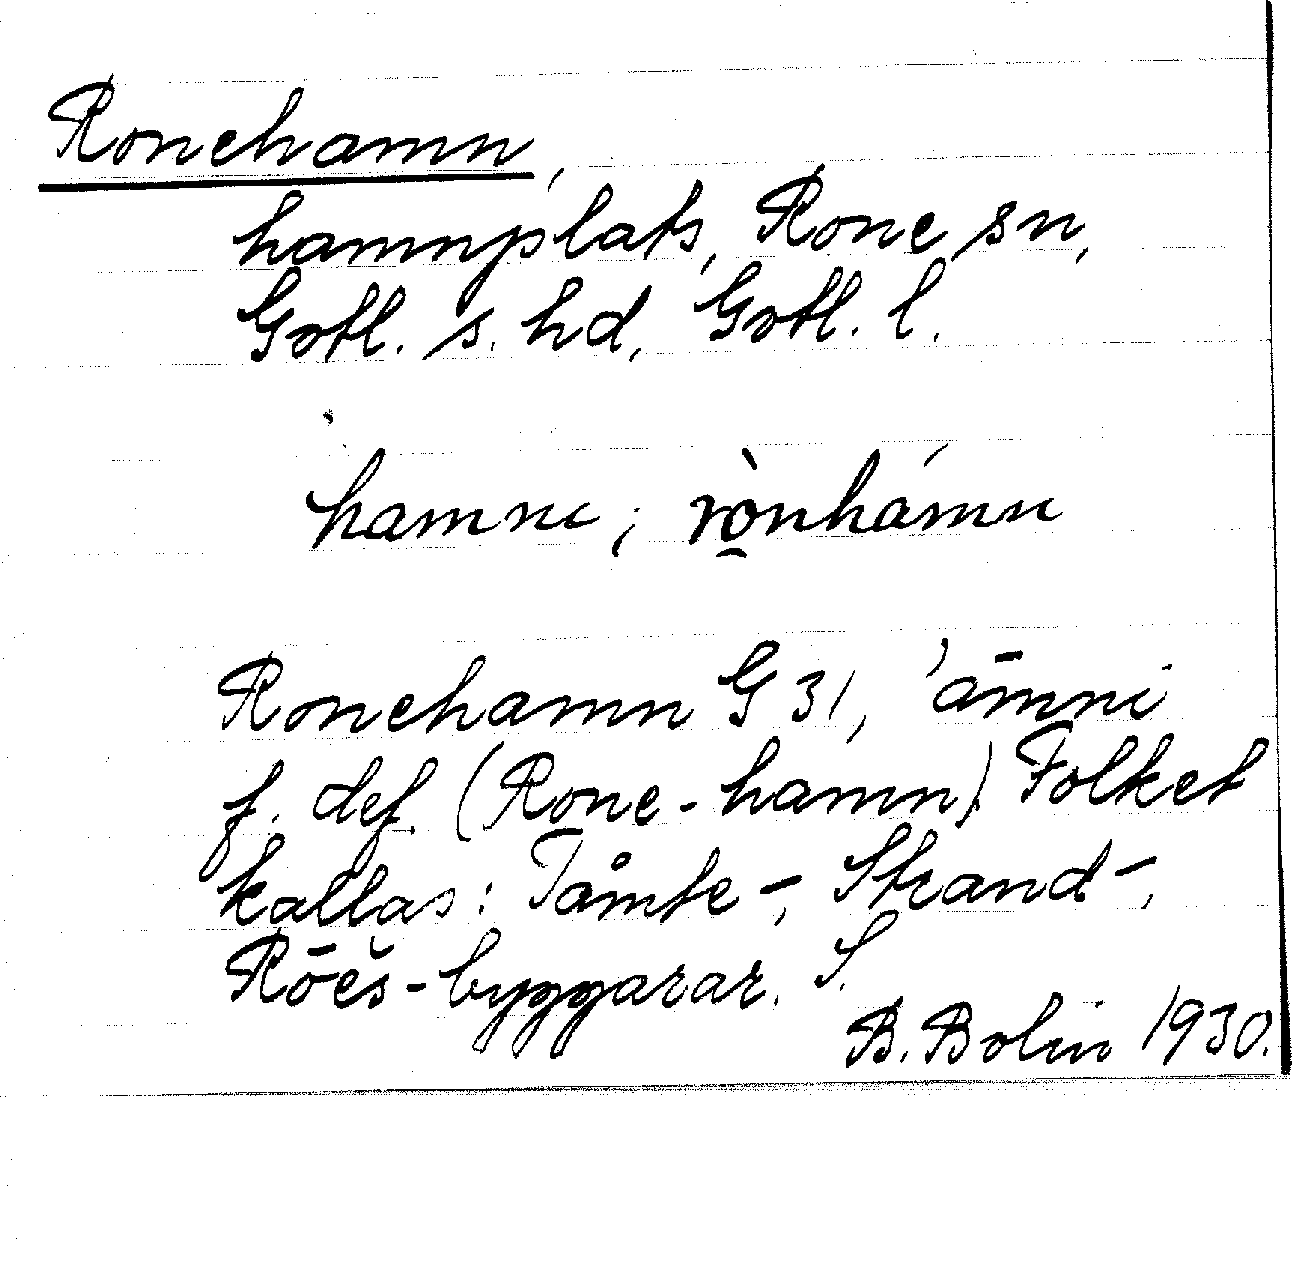 Ronehamn,
hamnplats, Rone sn,
Gotl. s. hd, Gotl. l.
hamnι; rò̭nhámn
Ronehamn G 31, 'āmni
f. def. (Rone-hamn). Folket
kallas: Tåmte-, Strand-,
Rōĕs-byggarar. S.
B. Bolin 1930.